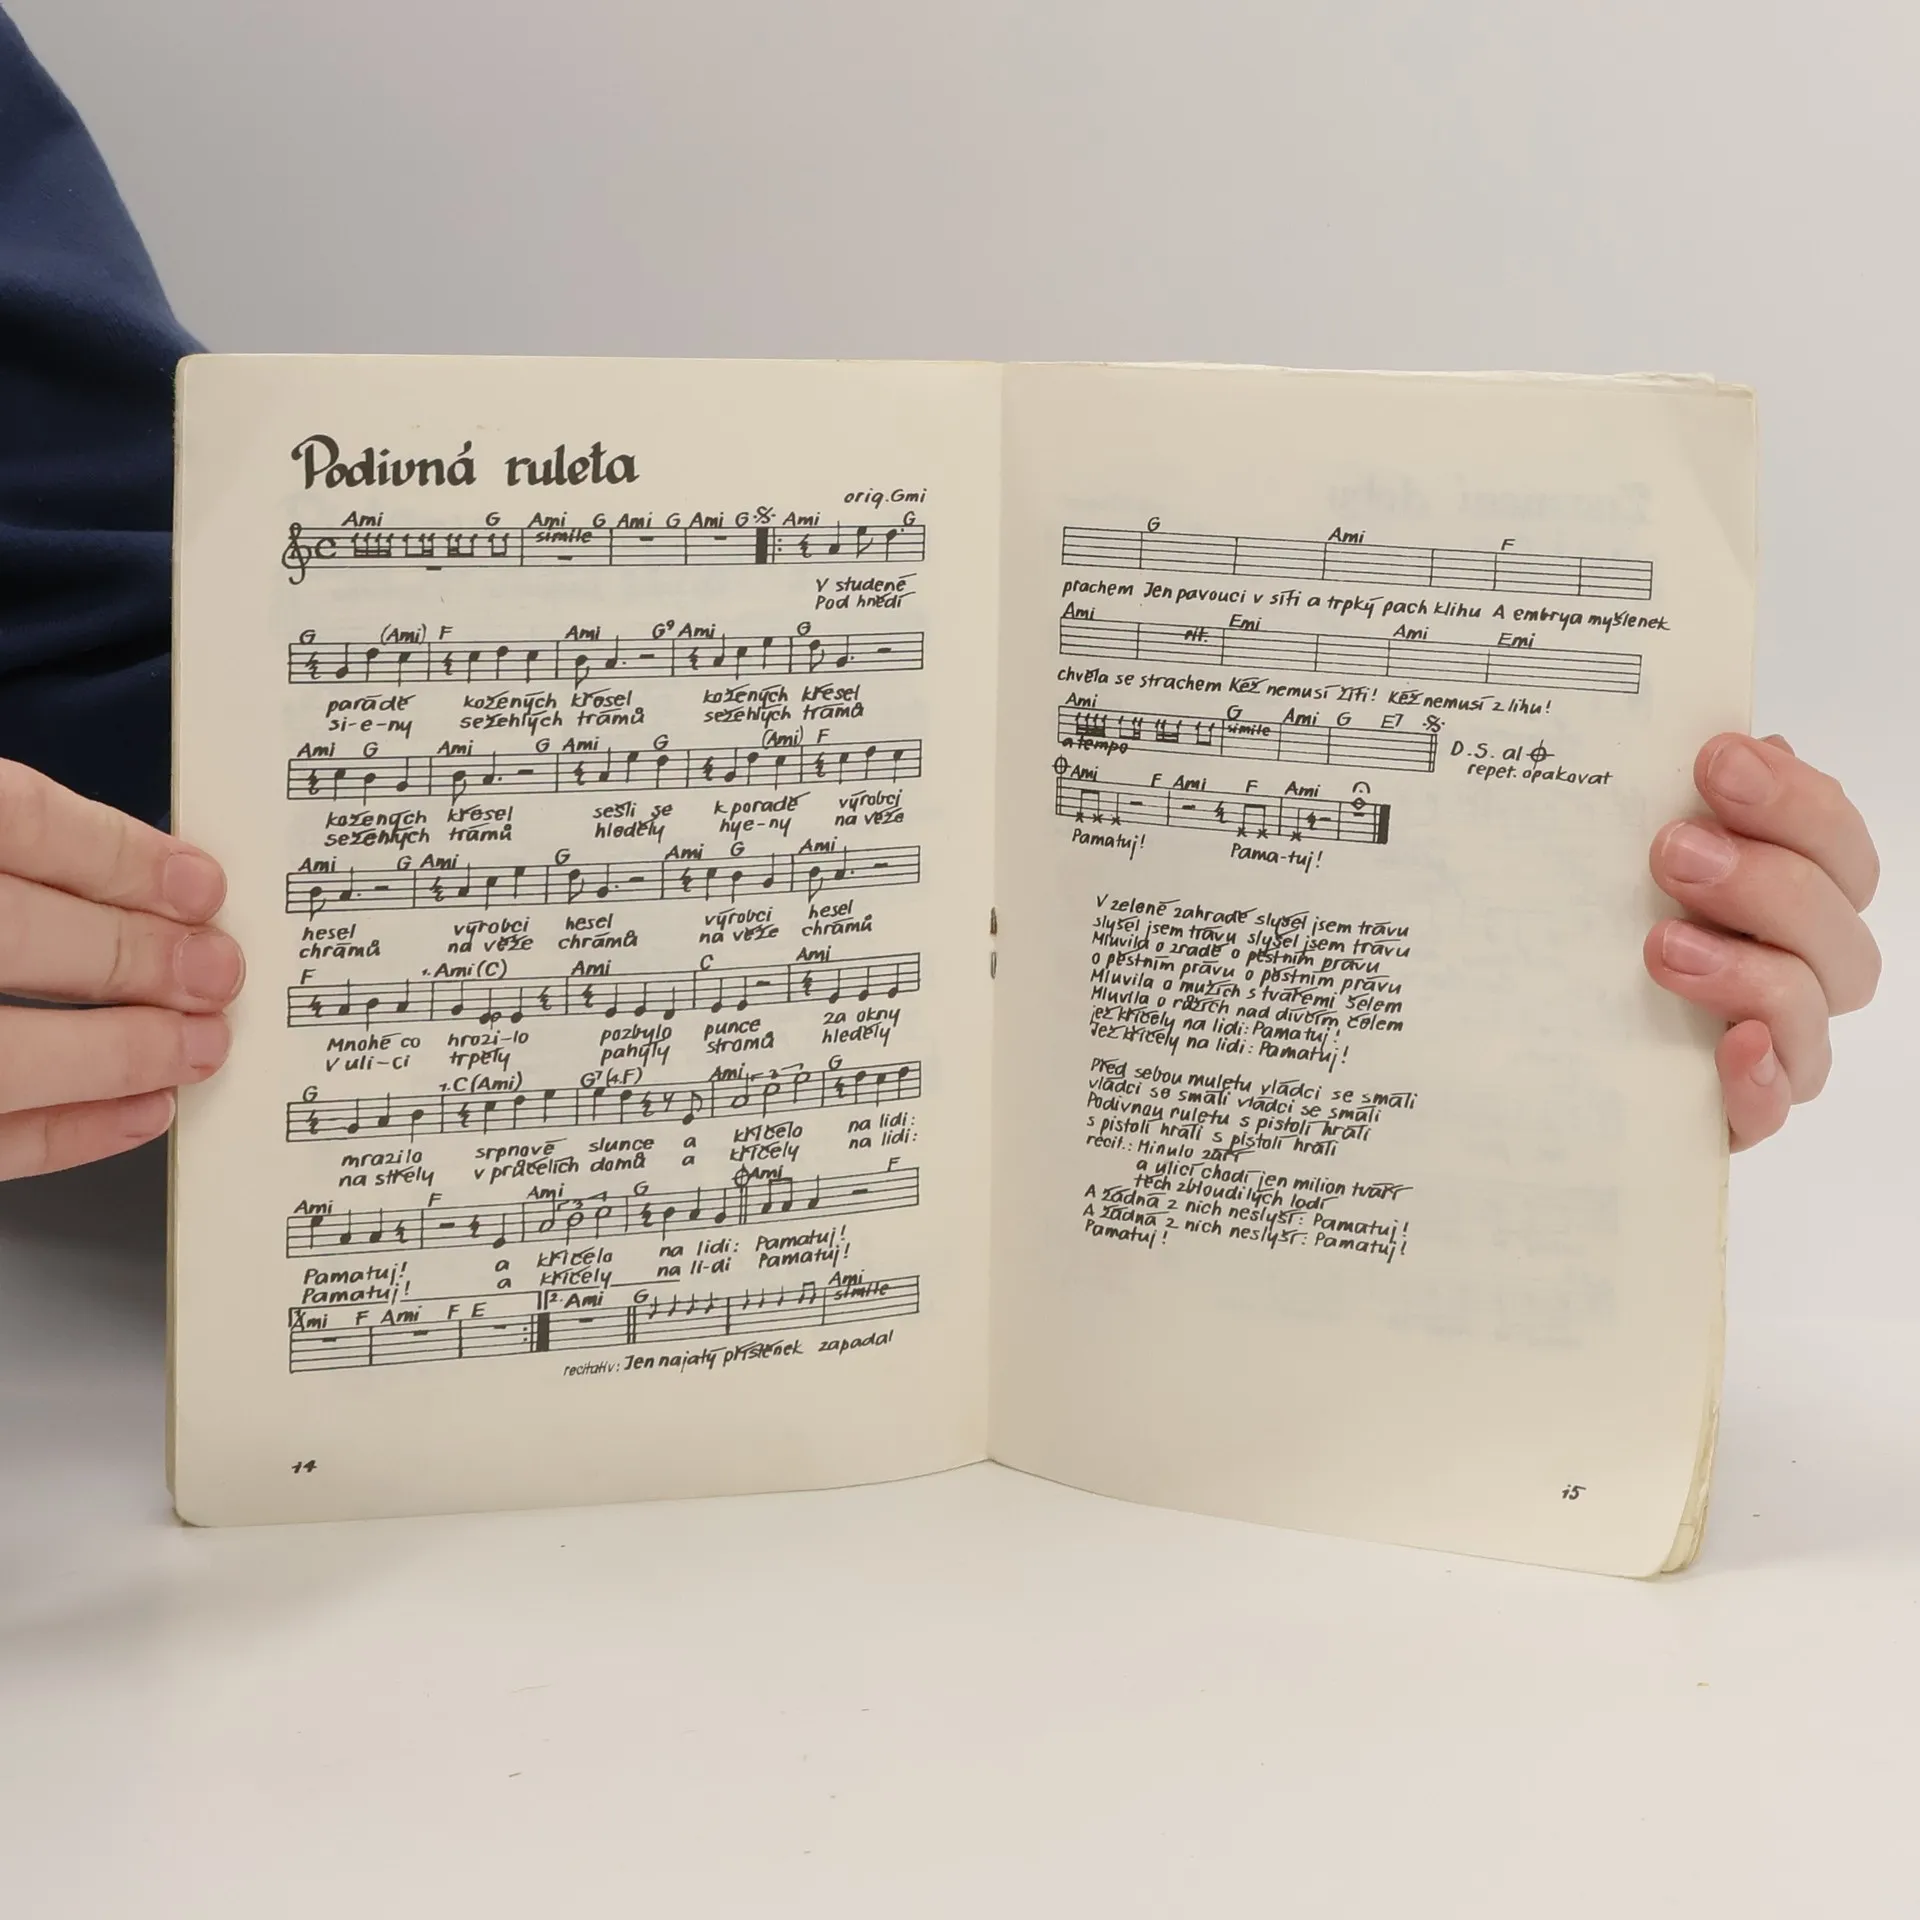 Podivná ruleta
orig. Gmi
Ami G Ami G Ami G Ami G Ami G
simile
V studené
Pod hnědí
G (Ami) F Ami G9 Ami G
parádě kožených křesel kožených křesel
si-e-ny sežehlých trámů sežehlých trámů
Ami G Ami G Ami G (Ami) F
kožených křesel sešli se k poradě výrobci
sežehlých trámů hleděly hye-ny na věže
Ami G Ami G Ami G Ami
hesel výrobci hesel výrobci hesel
chrámů na věže chrámů na věže chrámů
F 1. Ami (C) Ami C Ami
Mnohé co hrozi-lo pozbylo punce za okny
V uli-ci trpěly pahýly stromů hleděly
G 1. C (Ami) G7 (4.F) Ami 3 G
mrazilo srpnové slunce a křičelo na lidi:
na střely v průčelích domů a křičely na lidi:
Ami F Ami 3 G Ami F
Pamatuj! a křičelo na lidi: Pamatuj!
Pamatuj! a křičely na li-di Pamatuj!
Ami F Ami F E 2. Ami G Ami
simile
recitativ: Jen najatý přístěnek zapadal
14
G Ami F
prachem Jen pavouci v síti a trpký pach klihu A embrya myšlenek
Ami rit. Emi Ami Emi
chvěla se strachem Kéž nemusí žíti! Kéž nemusí z lihu!
Ami G Ami G E7
simile
a tempo
D.S. al
repet. opakovat
Ami F Ami F Ami
Pamatuj! Pama-tuj!
V zelené zahradě slyšel jsem trávu
slyšel jsem trávu slyšel jsem trávu
Mluvila o zradě o pěstním právu
o pěstním právu o pěstním právu
Mluvila o mužích s tvářemi šelem
Mluvila o růžích nad divčím čelem
jež křičely na lidi: Pamatuj!
Jež křičely na lidi: Pamatuj!
Před sebou muletu vládci se smáli
vládci se smáli vládci se smáli
Podivnou ruletu s pistolí hráli
s pistolí hráli s pistolí hráli
recit.: Minulo září
a ulicí chodí jen milion tváří
těch zbloudilých lodí
A žádná z nich neslyší: Pamatuj!
A žádná z nich neslyší: Pamatuj!
Pamatuj!
15